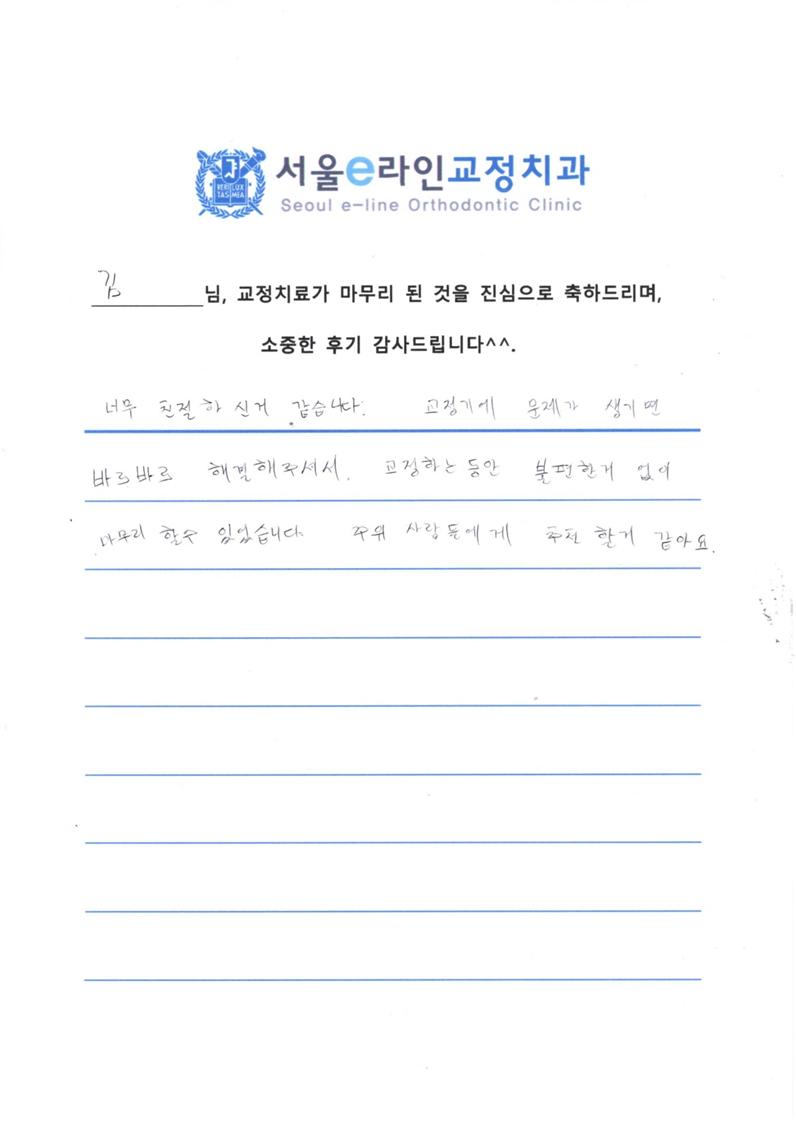 VERI LUX
TAS MEA
서울e라인교정치과
Seoul e-line Orthodontic Clinic
김 님, 교정치료가 마무리 된 것을 진심으로 축하드리며,
소중한 후기 감사드립니다^^.
너무 친절하 신거 같습니다. 교정기에 문제가 생기면
바르바르 해결해주셔서. 교정하는 동안 불편한거 없이
마무리 할수 있었습니다. 주위 사람들에게 추천 할거 같아요.